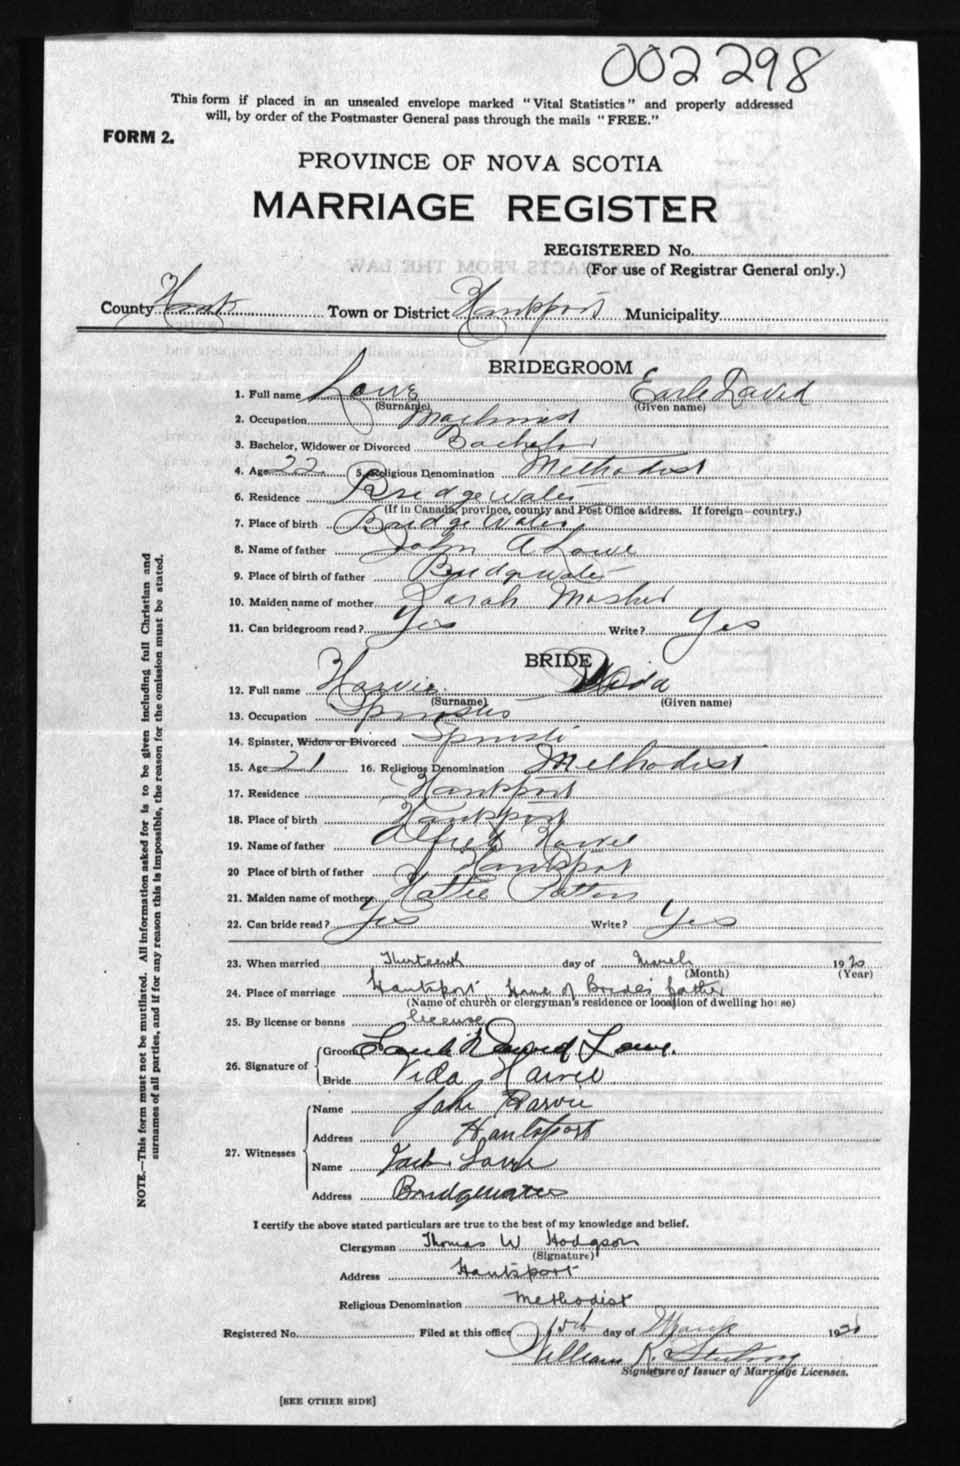 002298
This form if placed in an unsealed envelope marked "Vital Statistics" and properly addressed
will, by order of the Postmaster General pass through the mails "FREE."
FORM 2.
PROVINCE OF NOVA SCOTIA
MARRIAGE REGISTER
REGISTERED No.
(For use of Registrar General only.)
County Hants Town or District Hantsport Municipality
BRIDEGROOM
1. Full name Lowe Earle David
(Surname) (Given name)
2. Occupation Machinist
3. Bachelor, Widower or Divorced Bachelor
4. Age 22 5. Religious Denomination Methodist
6. Residence Bridgewater
(If in Canada, province, county and Post Office address. If foreign—country.)
7. Place of birth Bridgewater
8. Name of father John A Lowe
9. Place of birth of father Bridgewater
10. Maiden name of mother Sarah Mosher
11. Can bridegroom read? Yes Write? Yes
BRIDE
12. Full name Harvie Vida
(Surname) (Given name)
13. Occupation Spinster
14. Spinster, Widow or Divorced Spinster
15. Age 21 16. Religious Denomination Methodist
17. Residence Hantsport
18. Place of birth Hantsport
19. Name of father Alfred Harvie
20 Place of birth of father Hantsport
21. Maiden name of mother Hattie Patton
22. Can bride read? Yes Write? Yes
23. When married Thirteenth day of March 1920
(Month) (Year)
24. Place of marriage Hantsport, Home of Bride's father
(Name of church or clergyman's residence or location of dwelling house)
25. By license or banns license
26. Signature of Groom David Lowe.
Bride Vida Harvie
27. Witnesses
Name Harvie
Address Hantsport
Name Lowe
Address Bridgewater
I certify the above stated particulars are true to the best of my knowledge and belief.
Clergyman Thomas W Hodgson
(Signature)
Address Hantsport
Religious Denomination Methodist
Registered No. Filed at this office 15th day of March 1920
William K. Sterling
Signature of Issuer of Marriage Licenses.
[SEE OTHER SIDE]
NOTE.—This form must not be mutilated. All information asked for is to be given including full Christian and
surnames of all parties, and if for any reason this is impossible, the reason for the omission must be stated.